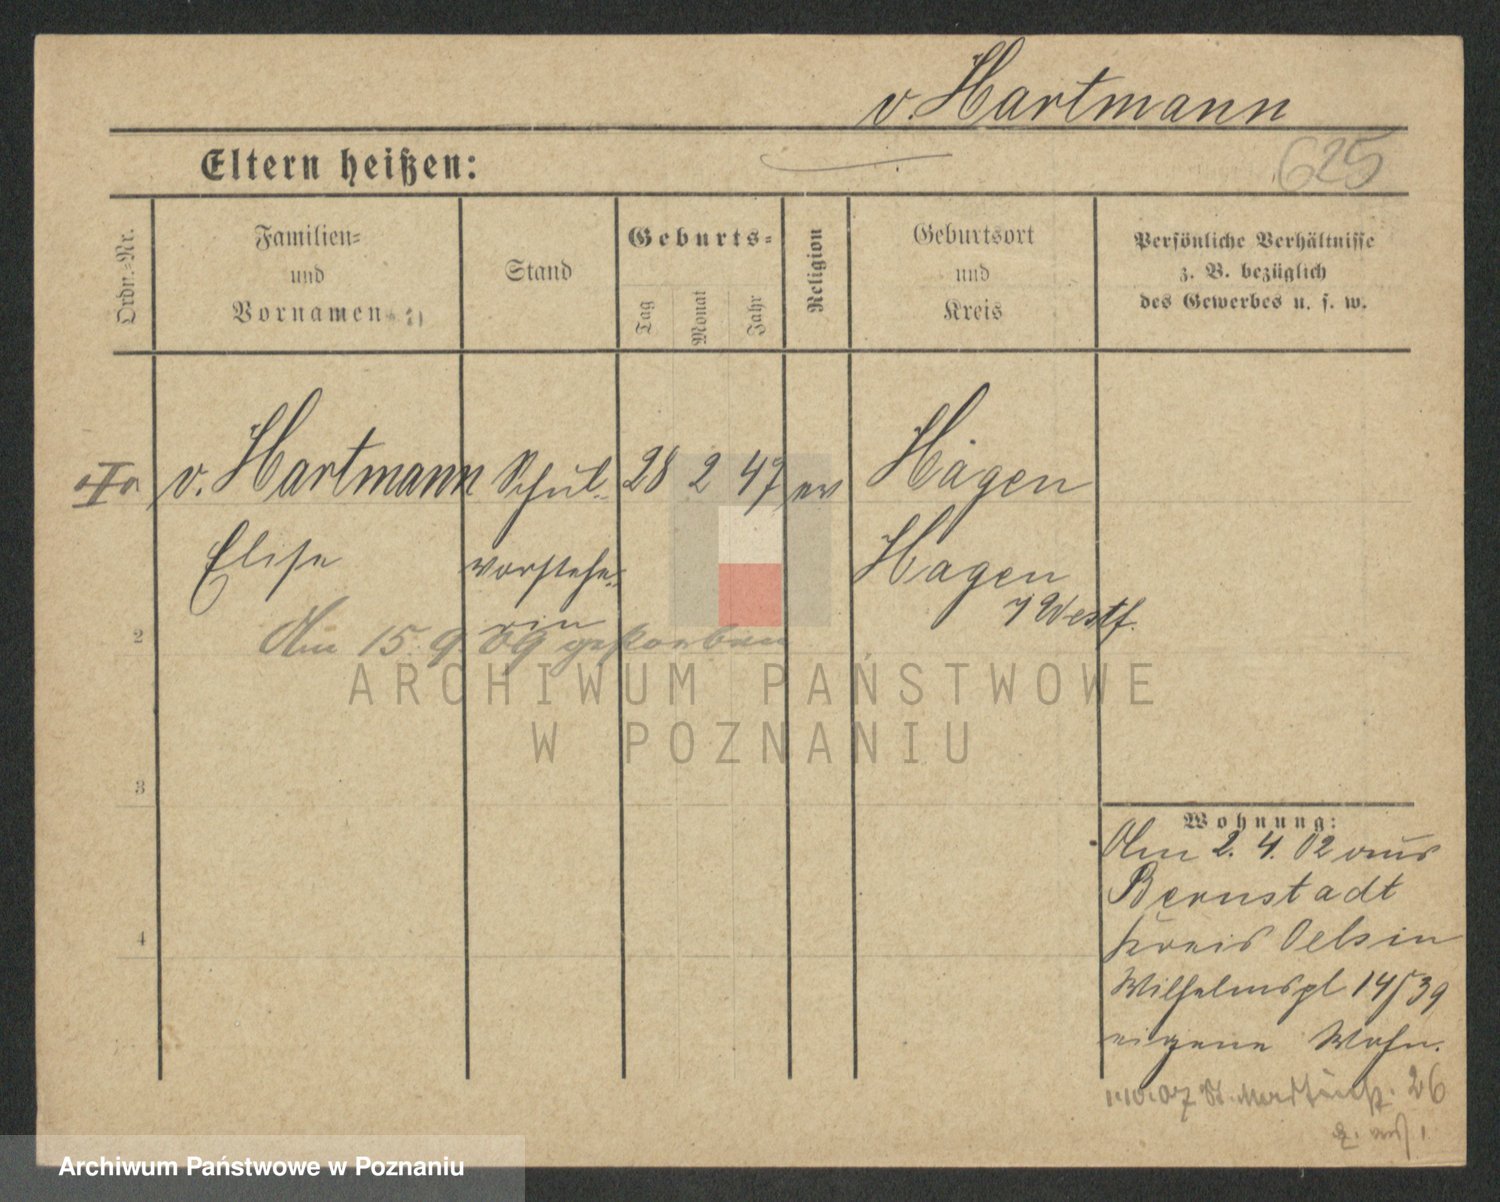 v. Hartmann
Eltern heißen:
625
Ordn.=Nr.
Familien=
und
Vornamen
Stand
Geburts=
Tag
Monat
Jahr
Religion
Geburtsort
und
Kreis
Persönliche Verhältnisse
z. B. bezüglich
des Gewerbes u. s. w.
v. Hartmann Schul- 28 2 47 ev Hagen
Elise vorstehe- Hagen
rin i/Westf.
2
Am 15. 9. 09 gestorben
ARCHIWUM PAŃSTWOWE
W POZNANIU
3
4
Wohnung:
Am 2. 4. 02 aus
Bernstadt
Kreis Oels in
Wilhelmspl 14/39
eigene Wohn.
1.10.07 St. 26
Archiwum Państwowe w Poznaniu